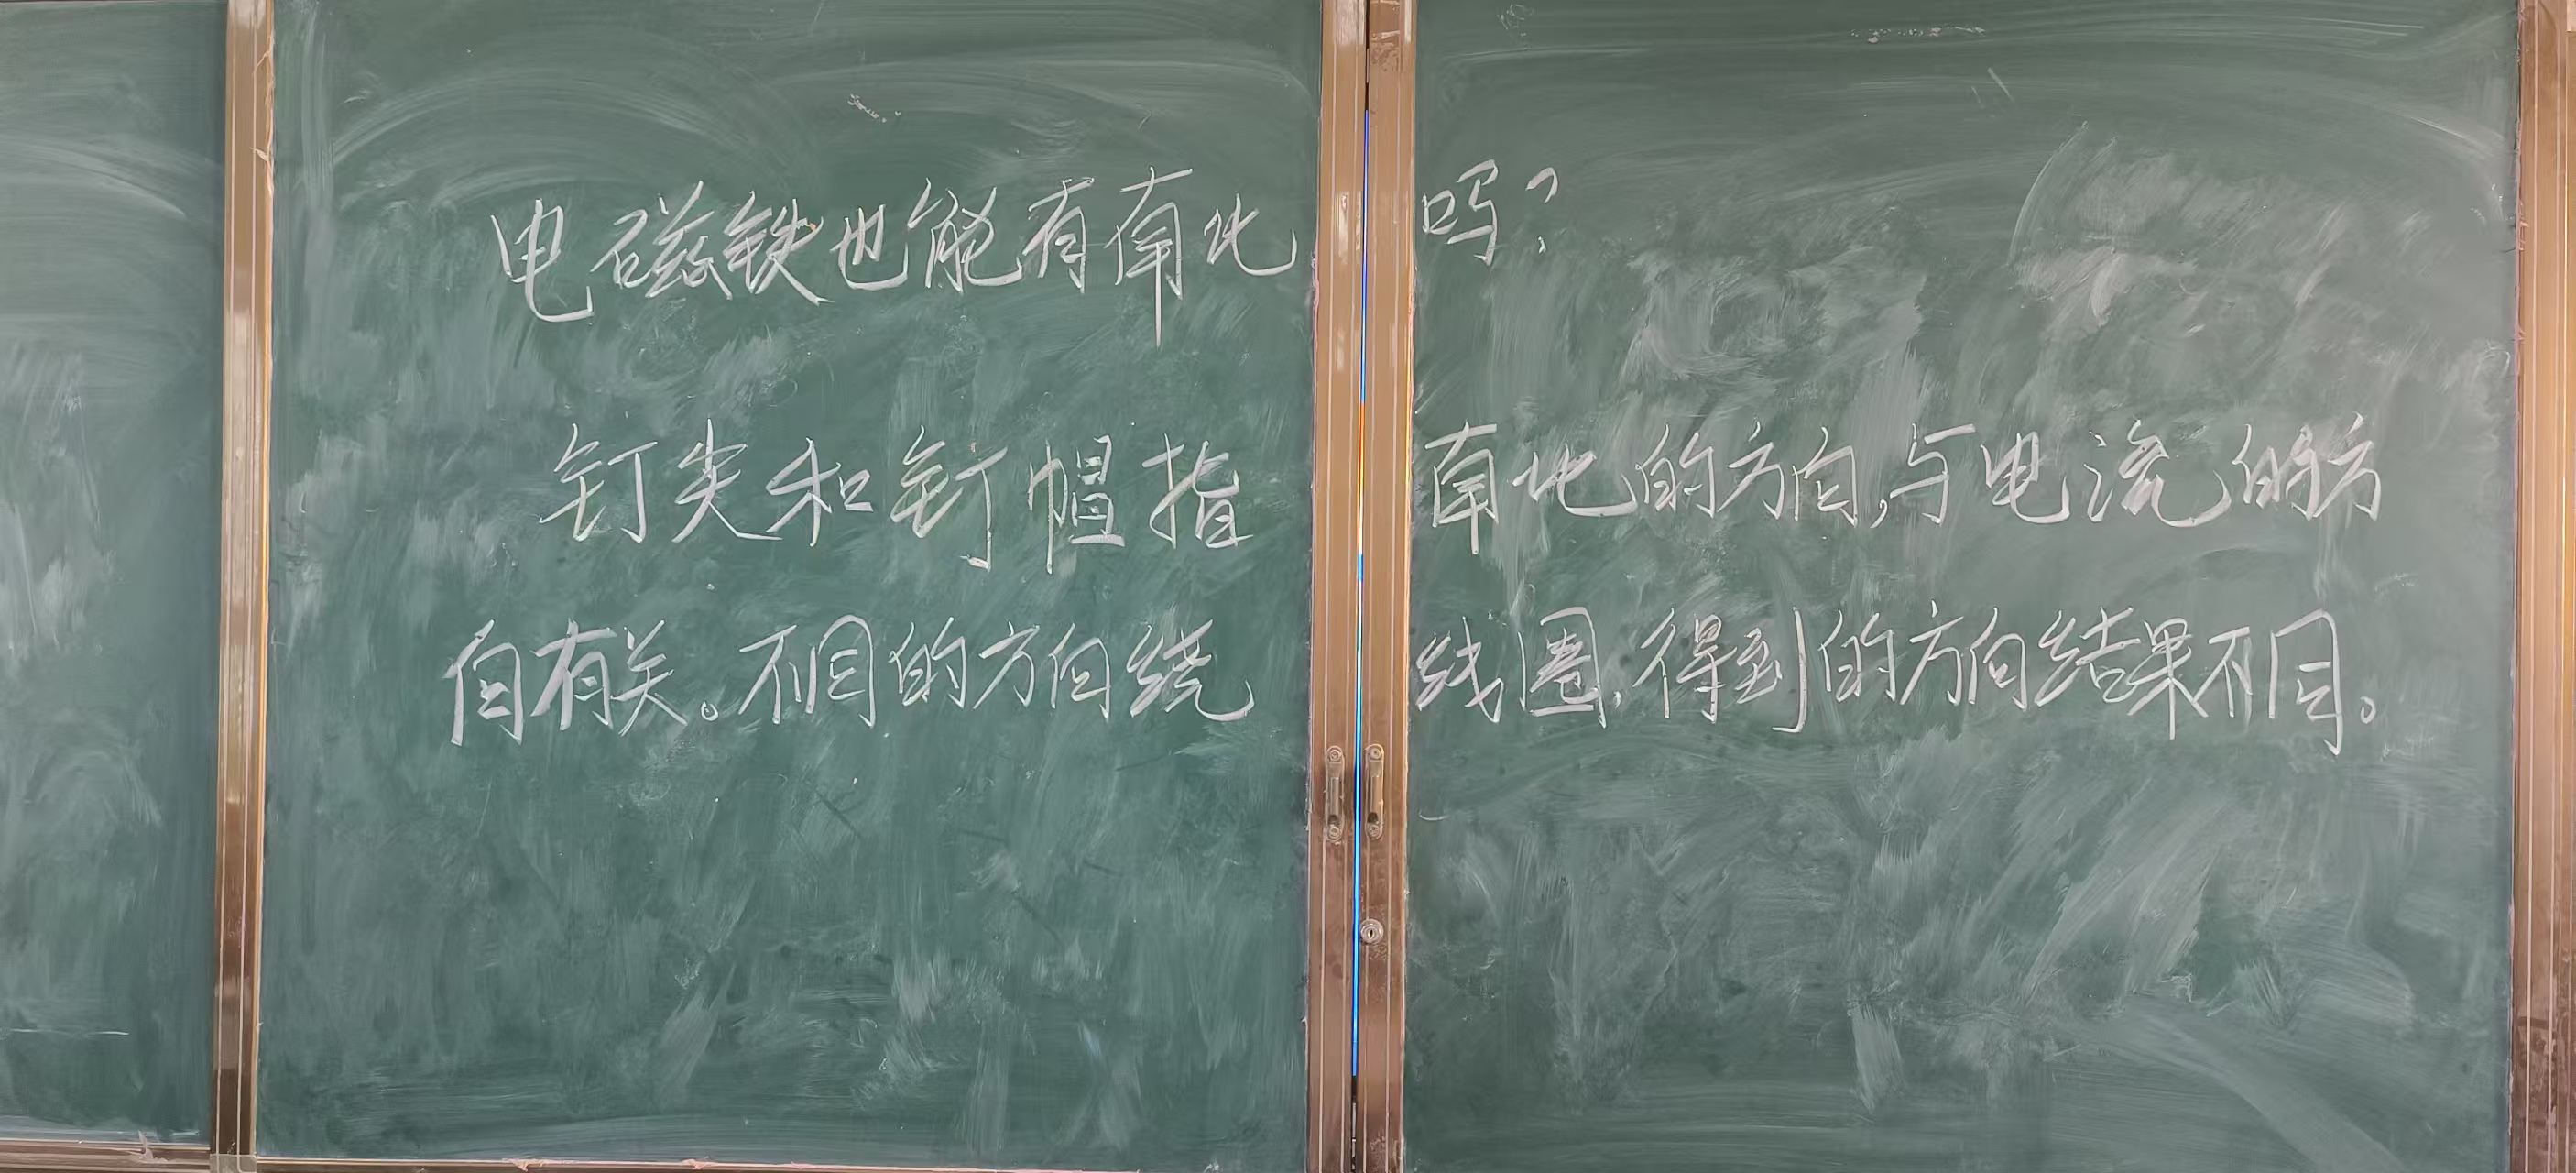 电磁铁也能有南北吗?
钉尖和钉帽指南北的方向,与电流的方
向有关。不同的方向绕线圈,得到的方向结果不同。